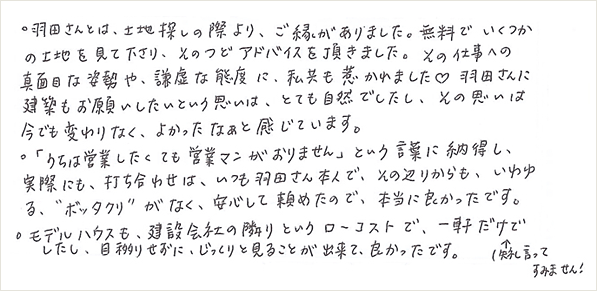 ○羽田さんとは、土地探しの際より、ご縁がありました。無料で いくつか
の土地を見て下さり、そのつど アドバイスを頂きました。その仕事への
真面目な姿勢や、謙虚な態度に、私共も惹かれました♡ 羽田さんに
建築もお願いしたいという思いは、とても自然でしたし、その思いは
今でも変わりなく、よかったなぁと感じています。
○「うちは営業したくても営業マンがおりません」という言葉に納得し、
実際にも、打ち合わせは、いつも羽田さん本人で、その辺りからも、いわゆ
る、"ボッタクリ"がなく、安心して頼めたので、本当に良かったです。
○モデルハウスも、建設会社の隣りというローコストで、一軒だけで
したし、目移りせずに、じっくりと見ることが出来て、良かったです。
(↑失礼言って
すみません!